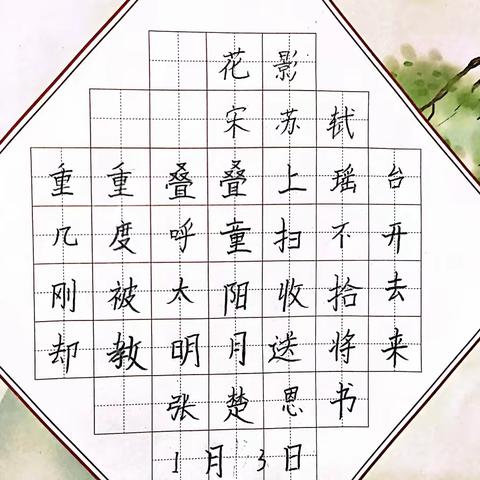 花影
宋苏轼
重重叠叠上瑶台
几度呼童扫不开
刚被太阳收拾去
却教明月送将来
张楚恩书
1月3日